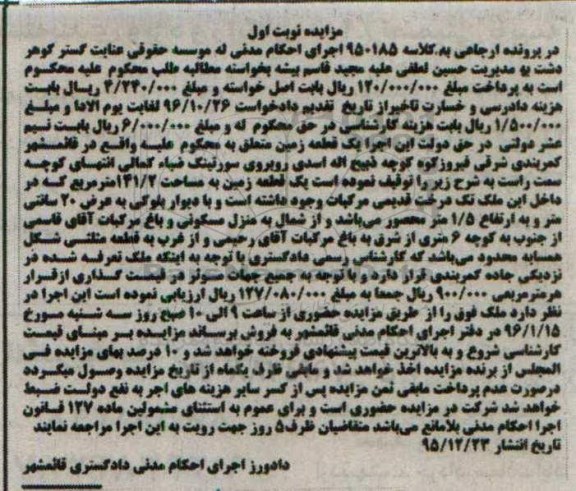 مزایده نوبت اول
در پرونده ارجاعی به کلاسه ۹۵۰۱۸۵ اجرای احکام مدنی له موسسه حقوقی عنایت گستر گوهر
دشت به مدیریت حسین لطفی علیه مجید قاسم بیشه بخواسته مطالبه طلب محکوم علیه محکوم
است به پرداخت مبلغ ۱۲۰/۰۰۰/۰۰۰ ریال بابت اصل خواسته و مبلغ ۴/۲۴۰/۰۰۰ ریال بابت
هزینه دادرسی و خسارت تاخیر از تاریخ تقدیم دادخواست ۹۶/۱۰/۲۶ لغایت یوم الادا و مبلغ
۱/۵۰۰/۰۰۰ ریال بابت هزینه کارشناسی در حق محکوم له و مبلغ ۶/۰۰۰/۰۰۰ ریال بابت نیم
عشر دولتی در حق دولت این اجرا یک قطعه زمین متعلق به محکوم علیه واقع در قائمشهر
کمربندی شرقی فیروزکوه کوچه ذبیح اله اسدی روبروی سورتینگ ضیاء کمالی انتهای کوچه
سمت راست به شرح زیر را توقیف نموده است یک قطعه زمین به مساحت ۱۴۱/۲ مترمربع که در
داخل این ملک تک درخت قدیمی مرکبات وجود داشته است و با دیوار بلوکی به عرض ۲۰ سانتی
متر و به ارتفاع ۱/۵ متر محصور می‌باشد و از شمال به منزل مسکونی و باغ مرکبات آقای قاسمی
از جنوب به کوچه ۶ متری از شرق به باغ مرکبات آقای رحیمی و از غرب به قطعه مثلثی شکل
همسایه محدود می‌باشد که کارشناس رسمی دادگستری با توجه به اینکه ملک تعرفه شده در
نزدیکی جاده کمربندی قرار دارد و با توجه به جمیع جهات موثر در قیمت گذاری ازقرار
هرمترمربعی ۹۰۰/۰۰۰ ریال جمعا به مبلغ ۱۲۷/۰۸۰/۰۰۰ ریال ارزیابی نموده است این اجرا در
نظر دارد ملک فوق را از طریق مزایده حضوری از ساعت ۹ الی ۱۰ صبح روز سه شنبه مورخ
۹۶/۱/۱۵ در دفتر اجرای احکام مدنی قائمشهر به فروش برساند مزایده بر مبنای قیمت
کارشناسی شروع و به بالاترین قیمت پیشنهادی فروخته خواهد شد و ۱۰ درصد بهای مزایده فی
المجلس از برنده مزایده اخذ خواهد شد و مابقی ظرف یکماه از تاریخ مزایده وصول میگرده
درصورت عدم پرداخت مابقی ثمن مزایده پس از کسر سایر هزینه های اجر به نفع دولت ضبط
خواهد شد شرکت در مزایده حضوری است و برای عموم به استثنای مشمولین ماده ۱۲۷ قانون
اجرا احکام مدنی بلامانع می‌باشد متقاضیان ظرف ۵ روز جهت رویت به این اجرا مراجعه نمایند
تاریخ انتشار ۹۵/۱۲/۲۳
دادورز اجرای احکام مدنی دادگستری قائمشهر